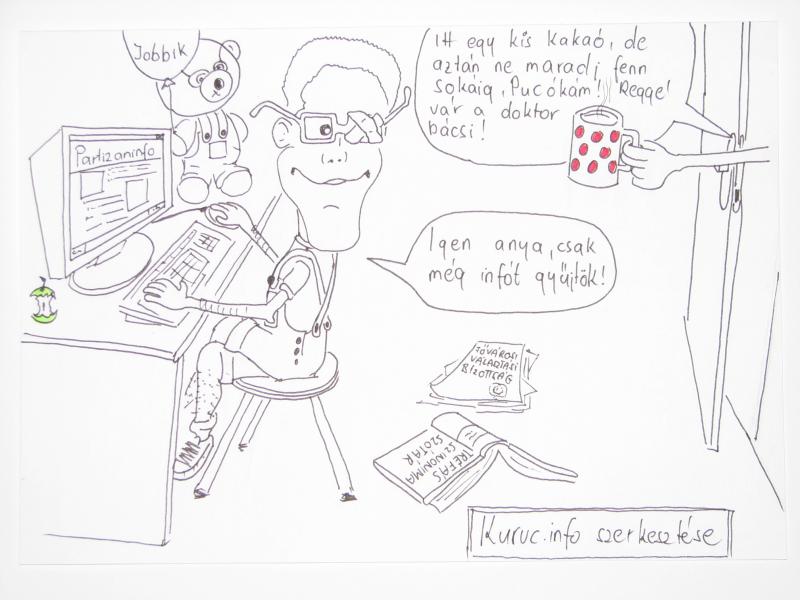 Jobbik
Itt egy kis kakaó, de
aztán ne maradj fenn
sokáig, Pucókám! Reggel
vár a doktor
bácsi!
Partizaninfo
Igen anya, csak
még infót gyűjtök!
FŐVÁROSI
VÁLASZTÁSI
BIZOTTSÁG
TRÉFÁS
SZINONÍMA
SZÓTÁR
Kuruc.info szerkesztése